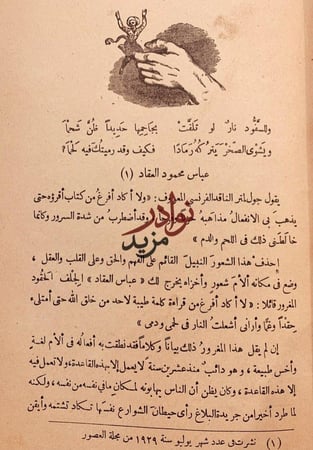 وللسَّفُّود نارٌ لو تَلَقَّتْ بجَاحِمِها حَديدًا ظُنَّ شَحْمًا
ويَشْوِى الصَّخْرَ يتركُه رَمَادًا فكيف وقد رميتُكَ فيه لَحْمًا؟
عباس محمود العقاد (١)
يقول جول لمتر الناقد الفرنسى المعروف: «ولا أكاد أفرغ من كتاب أقرؤه حتى
يذهب بى الانفعال مذاهبه وقد أضطرب من شدة السرور وكأنما
خالطنى ذلك فى اللحم والدم»
إحذف هذا الشعور النبيل القائم على الفهم والحق وعلى القلب والعقل،
وضع فى مكانه ألأم شعور وأخزاه يخرج لك «عباس العقاد» الجلف الحقود
المغرور قائلا: «لا أكاد أفرغ من قراءة كلمة طيبة لاحد من خلق الله حتى أمتلىء
حقدًا وغمًّا وأرانى أشعلت النار فى لحمى ودمى»
إن لم يقل هذا المغرور ذلك بيانًا وكلامًا فقد نطقت به أفعاله فى ألأم لغة
وأخس طبيعة، وهو دائب منذ عشرين سنة لا يعمل إلا بهذه القاعدة، ولا تعمل فيه
إلا هذه القاعدة، وكان يظن أن الناس يهابونه لمكان ما فى نفسه من نفسه، ولكنه
لما طرد أخيرًا من جريدة البلاغ رأى حيطان الشوارع نفسها تكاد تشتمه وأيقن
(١) نشرت فى عدد شهر يوليو سنة ١٩٢٩ من مجلة العصور
نوادر
مزيد